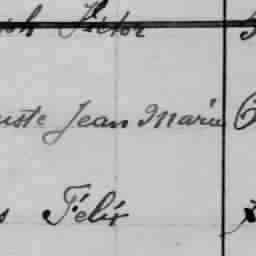 Victor
uste Jean Marie
s Félix